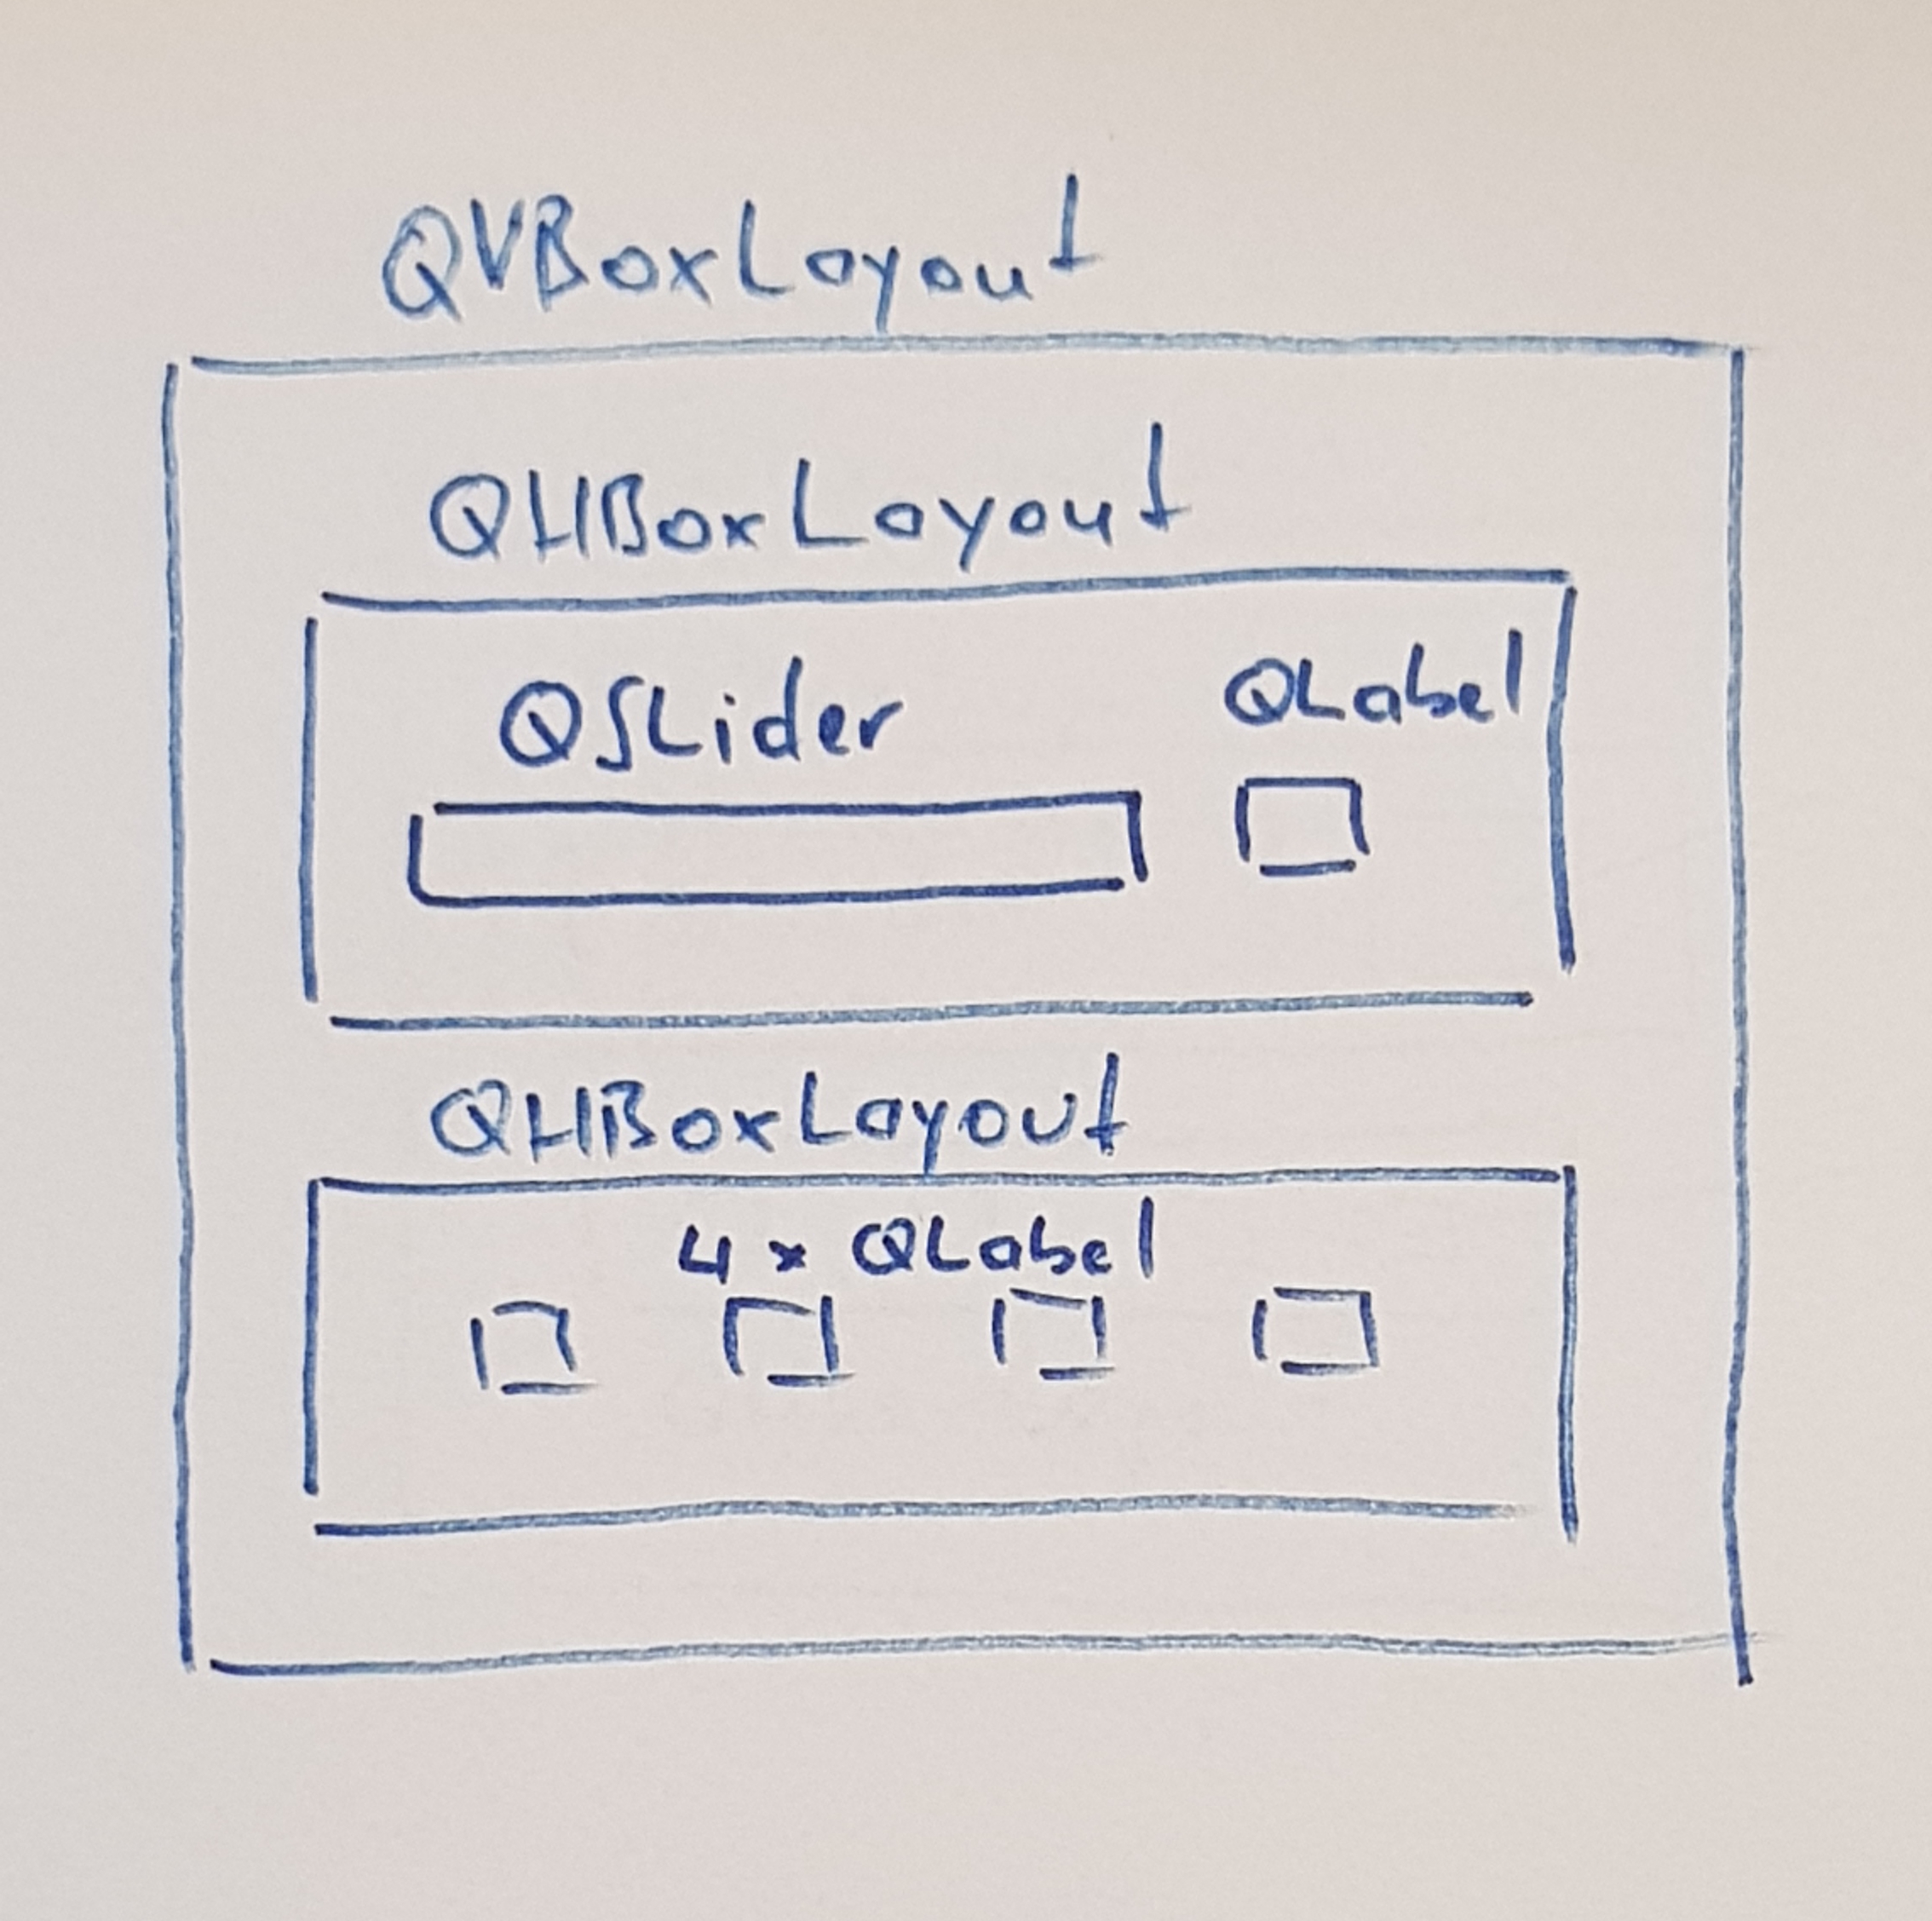 QVBoxLayout
QHBoxLayout
QSLider QLabel
QHBoxLayout
4 x QLabel